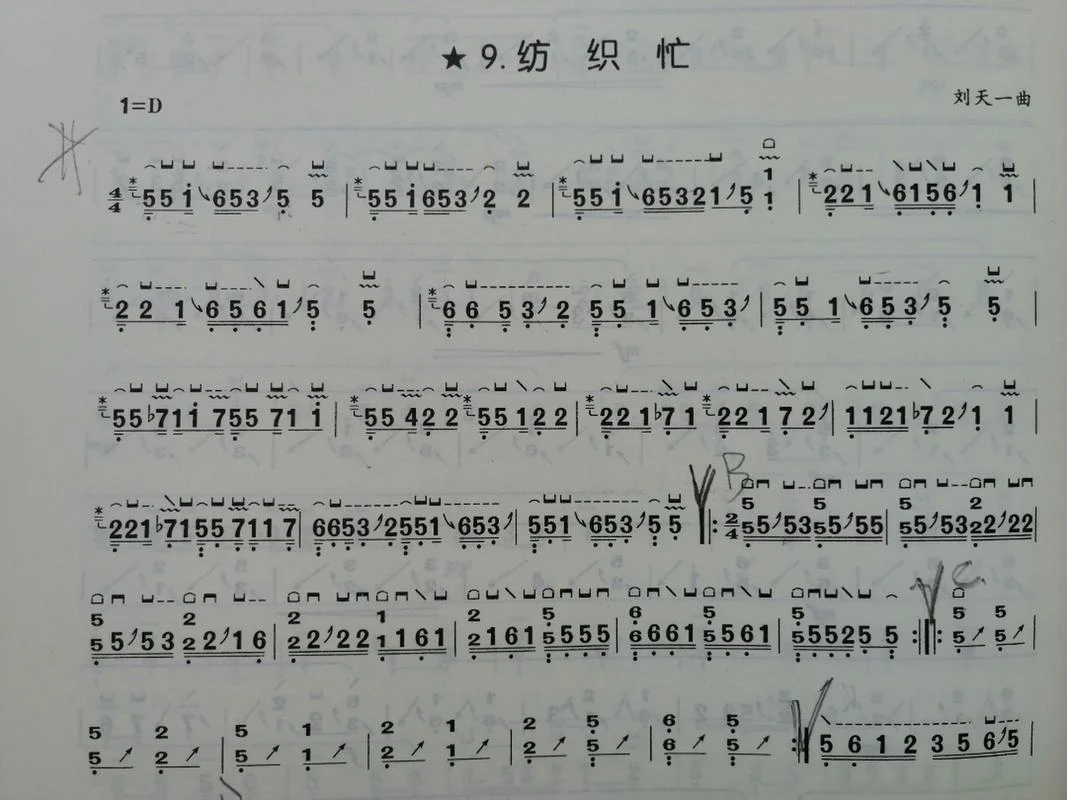 ★ 9. 纺 织 忙
1=D
刘天一曲
4/4 5 5 i 6 5 3 5 5 | 5 5 i 6 5 3 2 2 | 5 5 i 6 5 3 2 1 5 1 1 | 2 2 1 6 1 5 6 1 1 |
2 2 1 6 5 6 1 5 5 | 6 6 5 3 2 5 5 1 6 5 3 | 5 5 1 6 5 3 5 5 |
5 5 ♭7 1 i 7 5 5 7 1 i | 5 5 4 2 2 5 5 1 2 2 | 2 2 1 ♭7 1 2 2 1 7 2 | 1 1 2 1 ♭7 2 1 1 |
B
2 2 1 ♭7 1 5 5 7 1 1 7 | 6 6 5 3 2 5 5 1 6 5 3 | 5 5 1 6 5 3 5 5 |: 2/4 5 5 5 5 3 5 5 5 5 5 | 5 5 5 5 3 2 2 2 2 2 |
C.
5 5 5 5 3 2 2 2 1 6 | 2 2 2 2 2 1 1 1 6 1 | 2 2 1 6 1 5 5 5 5 5 | 6 6 6 6 1 5 5 5 6 1 | 5 5 5 5 2 5 5 :|: 5 5 5 5 |
5 5 2 2 | 5 5 1 1 | 2 2 1 1 | 2 2 5 5 | 6 6 5 5 :| 5 6 1 2 3 5 6 5 |